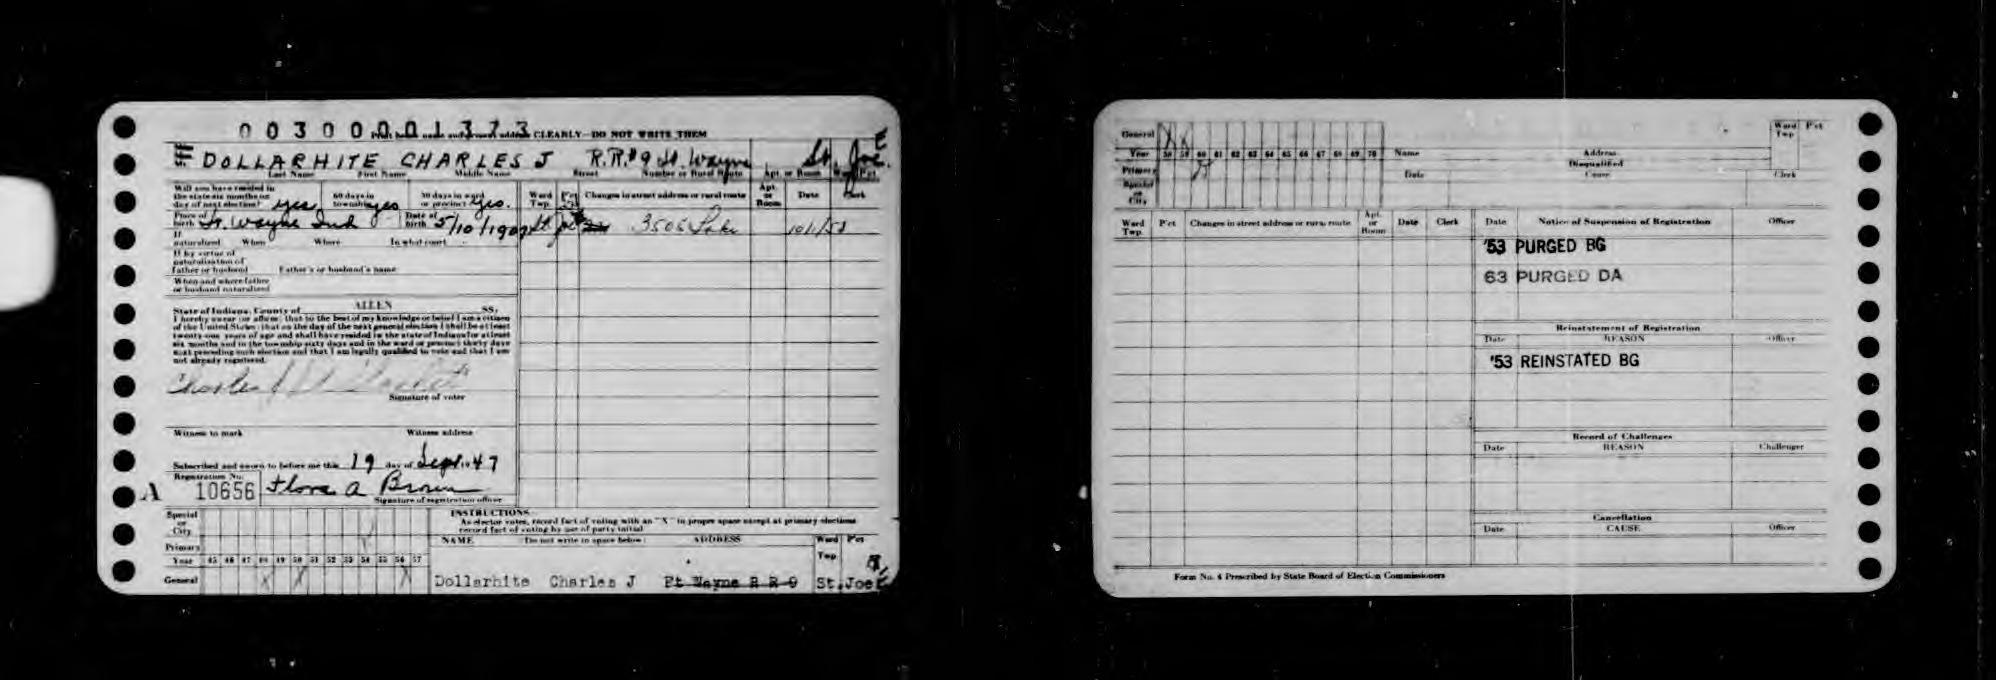 00300001373
CLEARLY—DO NOT WRITE THEM
DOLLARHITE CHARLES J R.R.#9 Ft. Wayne St. Joe E
Last Name First Name Middle Name Street Number or Rural Route Apt. or Room Pct.
Will you have resided in
the state six months on
day of next election? yes
60 days in
township? yes
30 days in ward
or precinct yes.
Place of
birth Ft. Wayne Ind
Date of
birth 5/10/190
If
naturalized When Where In what court
If by virtue of
naturalization of
father or husband Father's or husband's name
When and where father
or husband naturalized
ALLEN
State of Indiana, County of SS:
I hereby swear (or affirm) that to the best of my knowledge or belief I am a citizen
of the United States; that on the day of the next general election I shall be at least
twenty-one years of age and shall have resided in the state of Indiana for at least
six months and in the township sixty days and in the ward or precinct thirty days
next preceding such election and that I am legally qualified to vote and that I am
not already registered.
Charles J
Signature of voter
Witness to mark Witness address
Subscribed and sworn to before me this 19 day of Sept. 1947
Registration No.
A 10656 Flora A Brown
Signature of registration officer
Ward
Twp. Pct. Changes in street address or rural route Apt.
or
Room Date Clerk
St Joe 3505 Lake 10/1/53
Special
or
City
Primary
Year 45 46 47 48 49 50 51 52 53 54 55 56 57
General X X X
INSTRUCTIONS
As elector votes, record fact of voting with an "X" in proper space except at primary elections
record fact of voting by use of party initial
NAME (Do not write in space below) ADDRESS Ward
Twp. Pct
Dollarhite Charles J Ft Wayne R R 9 St. Joe E
General X X
Year 58 59 60 61 62 63 64 65 66 67 68 69 70
Primary
Special
or
City
Name Address Ward
Twp. Pct
Disqualified
Date Cause Clerk
Ward
Twp. Pct Changes in street address or rural route Apt.
or
Room Date Clerk
Date Notice of Suspension of Registration Officer
'53 PURGED BG
63 PURGED DA
Reinstatement of Registration
Date REASON Officer
'53 REINSTATED BG
Record of Challenges
Date REASON Challenger
Cancellation
Date CAUSE Officer
Form No. 4 Prescribed by State Board of Election Commissioners